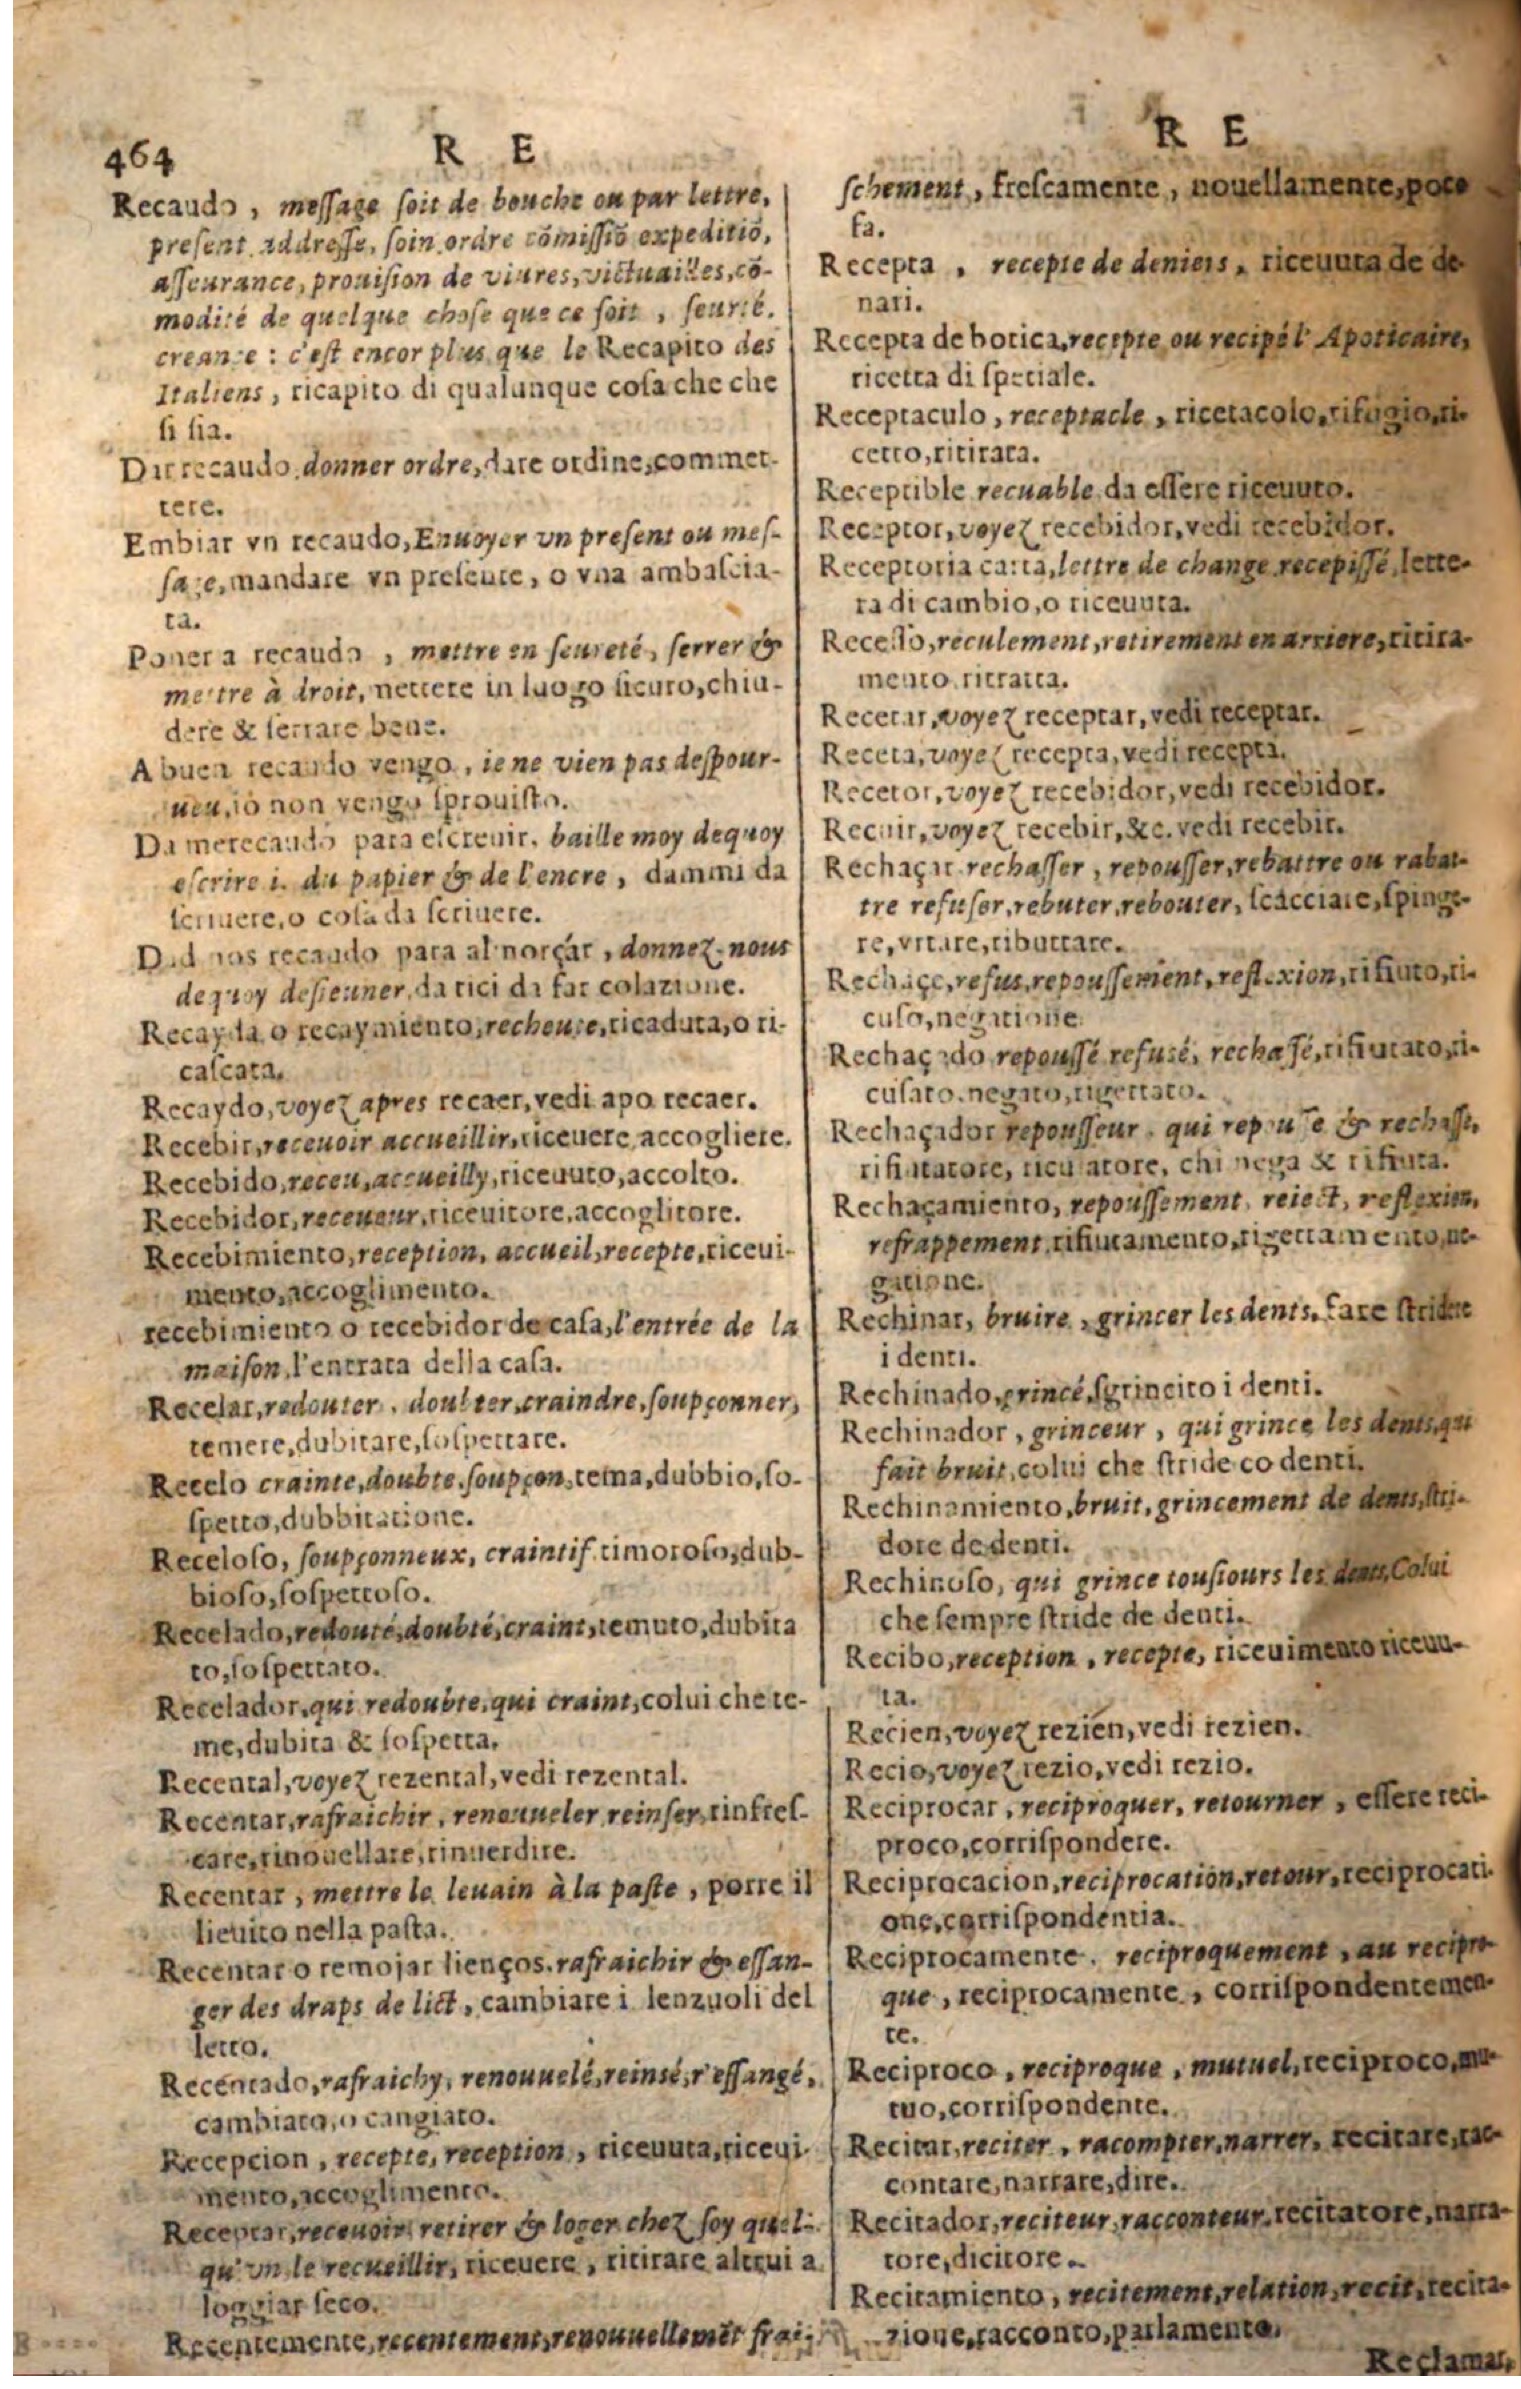 464
R E
Recaudo, meſſage ſoit de bouche ou par lettre,
preſent addreſſe, ſoin ordre cõmiſſiõ expeditiõ,
aſſeurance, prouiſion de viures, victuailles, cõ-
modité de quelque choſe que ce ſoit, ſeurté.
creance: c'eſt encor plus que le Recapito des
Italiens, ricapito di qualunque coſa che che
ſi ſia.
Dar recaudo, donner ordre, dare ordine, commet-
tere.
Embiar vn recaudo, Enuoyer vn preſent ou meſ-
ſage, mandare vn preſente, o vna ambaſcia-
ta.
Poner a recaudo, mettre en ſeureté, ſerrer &
mettre à droit, mettere in luogo ſicuro, chiu-
dere & ſerrare bene.
A buen recaudo vengo, ie ne vien pas deſpour-
ueu, io non vengo ſprouiſto.
Da me recaudo para eſcreuir, baille moy dequoy
eſcrire i. du papier & de l'encre, dammi da
ſcriuere, o coſa da ſcriuere.
Dad nos recaudo para almorçar, donnez-nous
dequoy deſieuner, da tici da far colazione.
Recayda o recaymiento, recheute, ricaduta, o ri-
caſcata.
Recaydo, voyez apres recaer, vedi apo recaer.
Recebir, receuoir accueillir, riceuere accogliere.
Recebido, receu, accueilly, riceuuto, accolto.
Recebidor, receueur, riceuitore, accoglitore.
Recebimiento, reception, accueil, recepte, riceui-
mento, accoglimento.
recebimiento o recebidor de caſa, l'entrée de la
maiſon, l'entrata della caſa.
Recelar, redouter, doubter, craindre, ſoupçonner,
temere, dubitare, ſoſpettare.
Recelo crainte, doubte, ſoupçon, tema, dubbio, ſo-
ſpetto, dubbitatione.
Receloſo, ſoupçonneux, craintif, timoroſo, dub-
bioſo, ſoſpettoſo.
Recelado, redouté, doubté, craint, temuto, dubita
to, ſoſpettato.
Recelador, qui redoubte, qui craint, colui che te-
me, dubita & ſoſpetta.
Recental, voyez rezental, vedi rezental.
Recentar, rafraichir, renouueler, reinſer, rinfreſ-
care, rinouellare, rinuerdire.
Recentar, mettre le leuain à la paſte, porre il
lieuito nella paſta.
Recentar o remojar lienços, rafraichir & eſſan-
ger des draps de lict, cambiare i lenzuoli del
letto.
Recentado, rafraichy, renouuelé, reinsé, r'eſſangé,
cambiato, o cangiato.
Recepcion, recepte, reception, riceuuta, riceui-
mento, accoglimento.
Receptar, receuoir retirer & loger chez ſoy quel-
qu'vn le recueillir, riceuere, ritirare altrui a
loggiar ſeco.
Recentemente, recentement, renouuellemēt frai-
R E
ſchement, freſcamente, nouellamente, poco
fa.
Recepta, recepte de deniers, riceuuta de de-
nari.
Recepta de botica, recepte ou recipé l'Apoticaire,
ricetta di ſpetiale.
Receptaculo, receptacle, ricetacolo, rifugio, ri-
cetto, ritirata.
Receptible recuable da eſſere riceuuto.
Receptor, voyez recebidor, vedi recebidor.
Receptoria carta, lettre de change recepiſſé, lette-
ra di cambio, o riceuuta.
Receſſo, reculement, retirement en arriere, ritira-
mento ritratta.
Recetar, voyez receptar, vedi receptar.
Receta, voyez recepta, vedi recepta.
Recetor, voyez recebidor, vedi recebidor.
Recuir, voyez recebir, &c. vedi recebir.
Rechaçar rechaſſer, repouſſer, rebattre ou rabat-
tre refuſer, rebuter, rebouter, ſcacciare, ſpinge-
re, vrtare, ributtare.
Rechaçe, refus, repouſſement, reflexion, rifiuto, ri-
cuſo, negatione.
Rechaçado repouſſé refusé, rechaſſé, rifiutato, ri-
cuſato, negato, rigettato.
Rechaçador repouſſeur, qui repouſſe & rechaſſe,
rifiutatore, ricuſatore, chi nega & rifiuta.
Rechaçamiento, repouſſement, reiect, reflexion,
refrappement, rifiutamento, rigettamento, ne-
gatione.
Rechinar, bruire, grincer les dents, fare ſtridere
i denti.
Rechinado, grincé, ſgrincito i denti.
Rechinador, grinceur, qui grince les dents, qui
fait bruit, colui che ſtride co denti.
Rechinamiento, bruit, grincement de dents, ſtri-
dore de denti.
Rechinoſo, qui grince touſiours les dents, Colui
che ſempre ſtride de denti.
Recibo, reception, recepte, riceuimento riceuu-
ta.
Recien, voyez rezien, vedi rezien.
Recio, voyez rezio, vedi rezio.
Reciprocar, reciproquer, retourner, eſſere reci-
proco, corriſpondere.
Reciprocacion, reciprocation, retour, reciprocati-
one, corriſpondentia.
Reciprocamente, reciproquement, au recipro-
que, reciprocamente, corriſpondentemen-
te.
Reciproco, reciproque, mutuel, reciproco, mu-
tuo, corriſpondente.
Recitar, reciter, racompter, narrer, recitare, rac-
contare, narrare, dire.
Recitador, reciteur, racconteur, recitatore, narra-
tore, dicitore.
Recitamiento, recitement, relation, recit, recita-
zione, racconto, parlamento.
Reclamar,